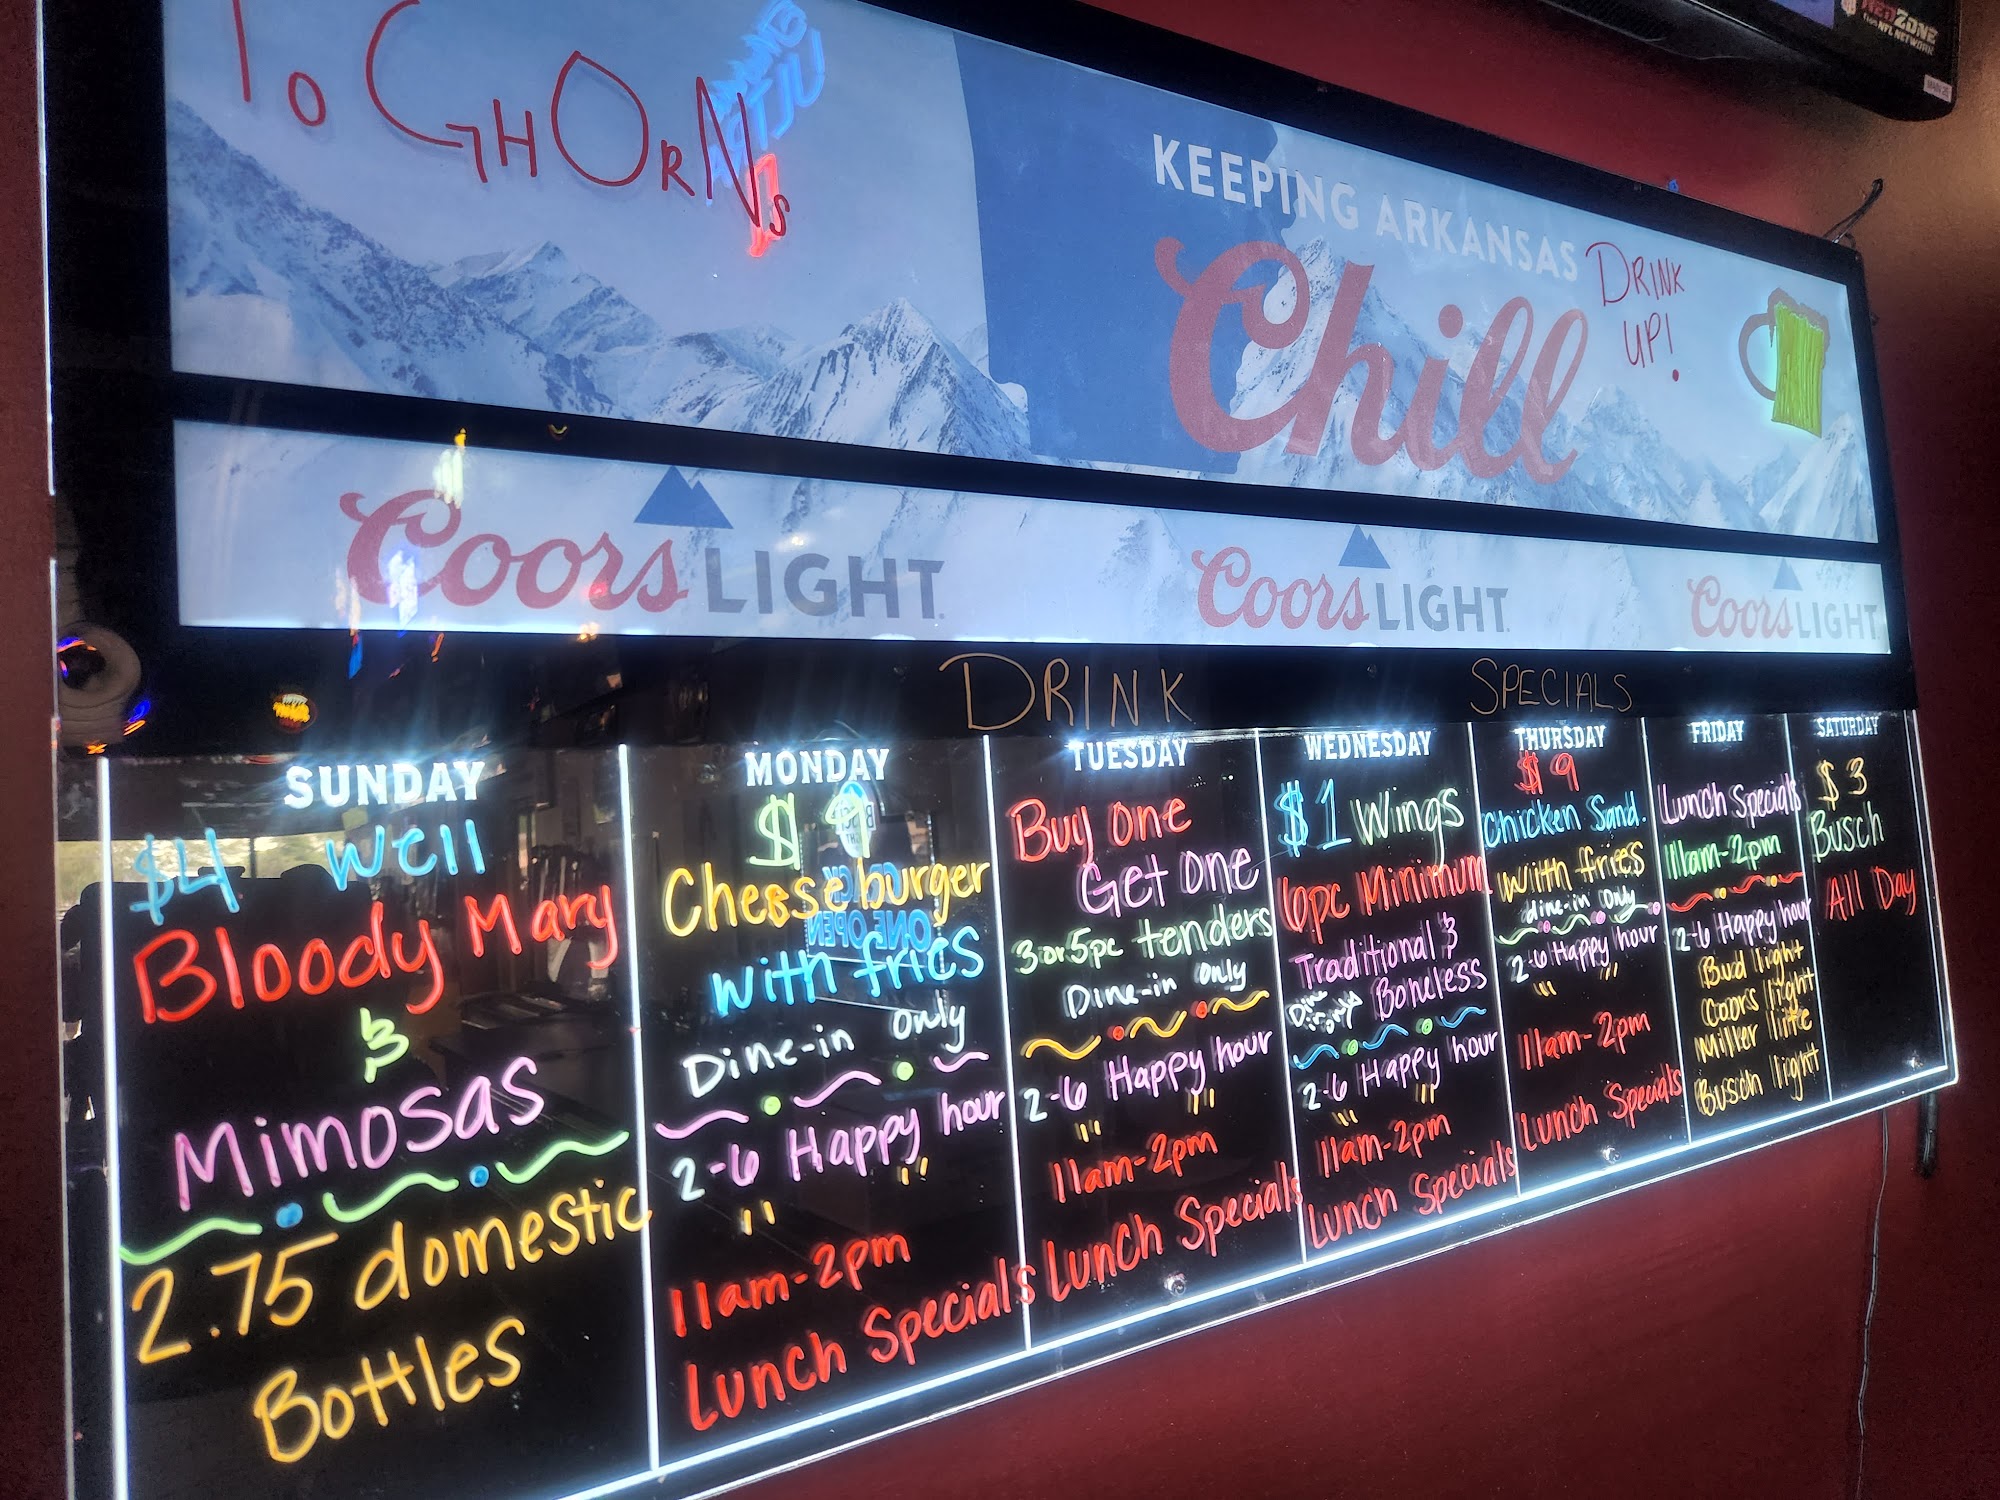 ToGHORNs
KEEPING ARKANSAS
Chill
DRINK
UP!
REDZONE
FROM NFL NETWORK
Coors LIGHT
Coors LIGHT
Coors LIGHT
DRINK SPECIALS
SUNDAY
$4 Well
Bloody Mary
&
Mimosas
2.75 domestic
Bottles
MONDAY
$9
Cheeseburger
with fries
Dine-in only
2-6 Happy hour
" "
11am-2pm
Lunch Specials
TUESDAY
Buy One
Get One
3 or 5pc tenders
Dine-in only
2-6 Happy hour
" "
11am-2pm
Lunch Specials
WEDNESDAY
$1 Wings
6pc Minimum
Traditional &
Boneless
Dine in only
2-6 Happy hour
" "
11am-2pm
Lunch Specials
THURSDAY
$9
Chicken Sand.
with fries
dine-in only
2-6 Happy hour
" "
11am-2pm
Lunch Specials
FRIDAY
Lunch Specials
11am-2pm
2-6 Happy hour
Bud light
Coors light
Miller lite
Busch light
SATURDAY
$3
Busch
All Day